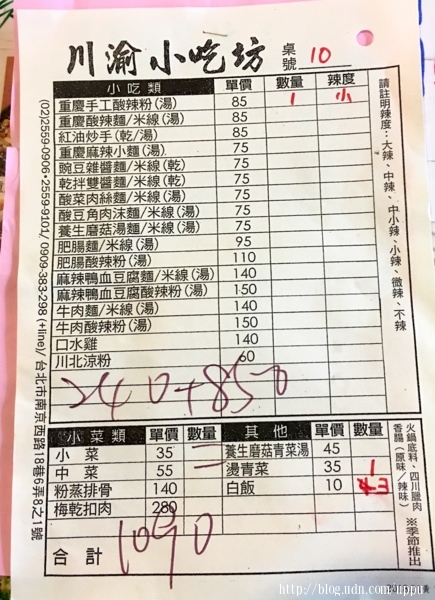 川渝小吃坊 桌號 10
小吃類 單價 數量 辣度
重慶手工酸辣粉(湯) 85 1 小
重慶酸辣麵/米線(湯) 85
紅油炒手(乾/湯) 85
重慶麻辣小麵(湯) 75
豌豆雜醬麵/米線(乾) 75
乾拌雙醬麵/米線(乾) 75
酸菜肉絲麵/米線(湯) 75
酸豆角肉沫麵/米線(湯) 75
養生蘑菇湯麵/米線(湯) 75
肥腸麵/米線(湯) 95
肥腸酸辣粉(湯) 110
麻辣鴨血豆腐麵/米線(湯) 140
麻辣鴨血豆腐酸辣粉(湯) 150
牛肉麵/米線(湯) 140
牛肉酸辣粉(湯) 150
口水雞 140
川北涼粉 60
240+850
小菜類 單價 數量
小菜 35 二
中菜 55
粉蒸排骨 140
梅乾扣肉 280
其他 單價 數量
養生蘑菇青菜湯 45
燙青菜 35 1
白飯 10 3
合計 1090
請註明辣度：大辣、中辣、中小辣、小辣、微辣、不辣
火鍋底料、四川臘肉
香腸(原味/辣味) ※季節推出
(02)2559-0906•2559-9101/ 0906-383-298 (+line)/ 台北市南京西路18巷6弄8之1號
http://blog.udn.com/uppu